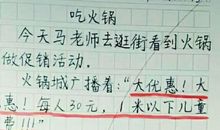 吃火锅
今天马老师去逛街看到火锅
做促销活动。
火锅城广播着："大优惠！大
惠！每人30元，1米以下儿童
费!!!"